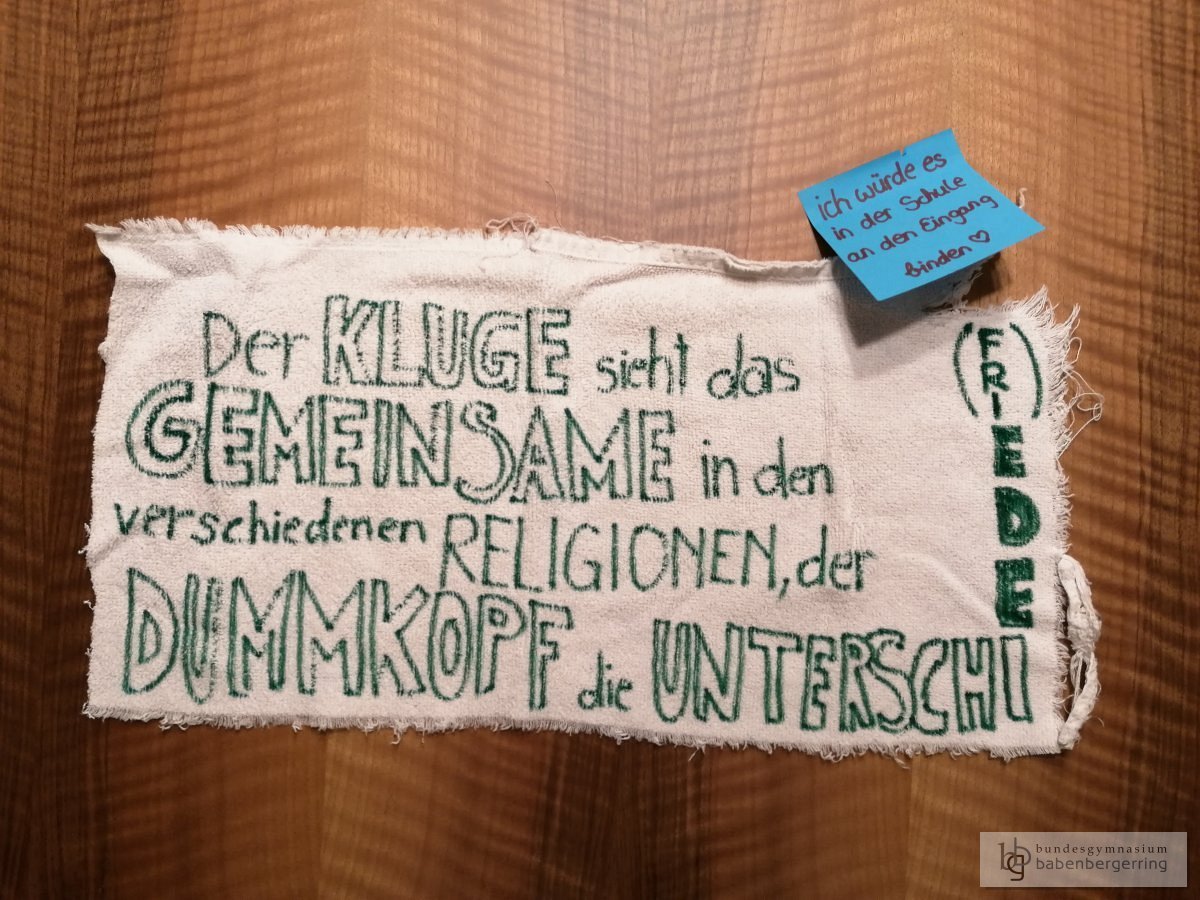 ich würde es
in der Schule
an den Eingang
binden ♡
Der KLUGE sieht das
GEMEINSAME in den
verschiedenen RELIGIONEN, der
DUMMKOPF die UNTERSCHI
(FRI)EDE
bg bundesgymnasium
babenbergerring